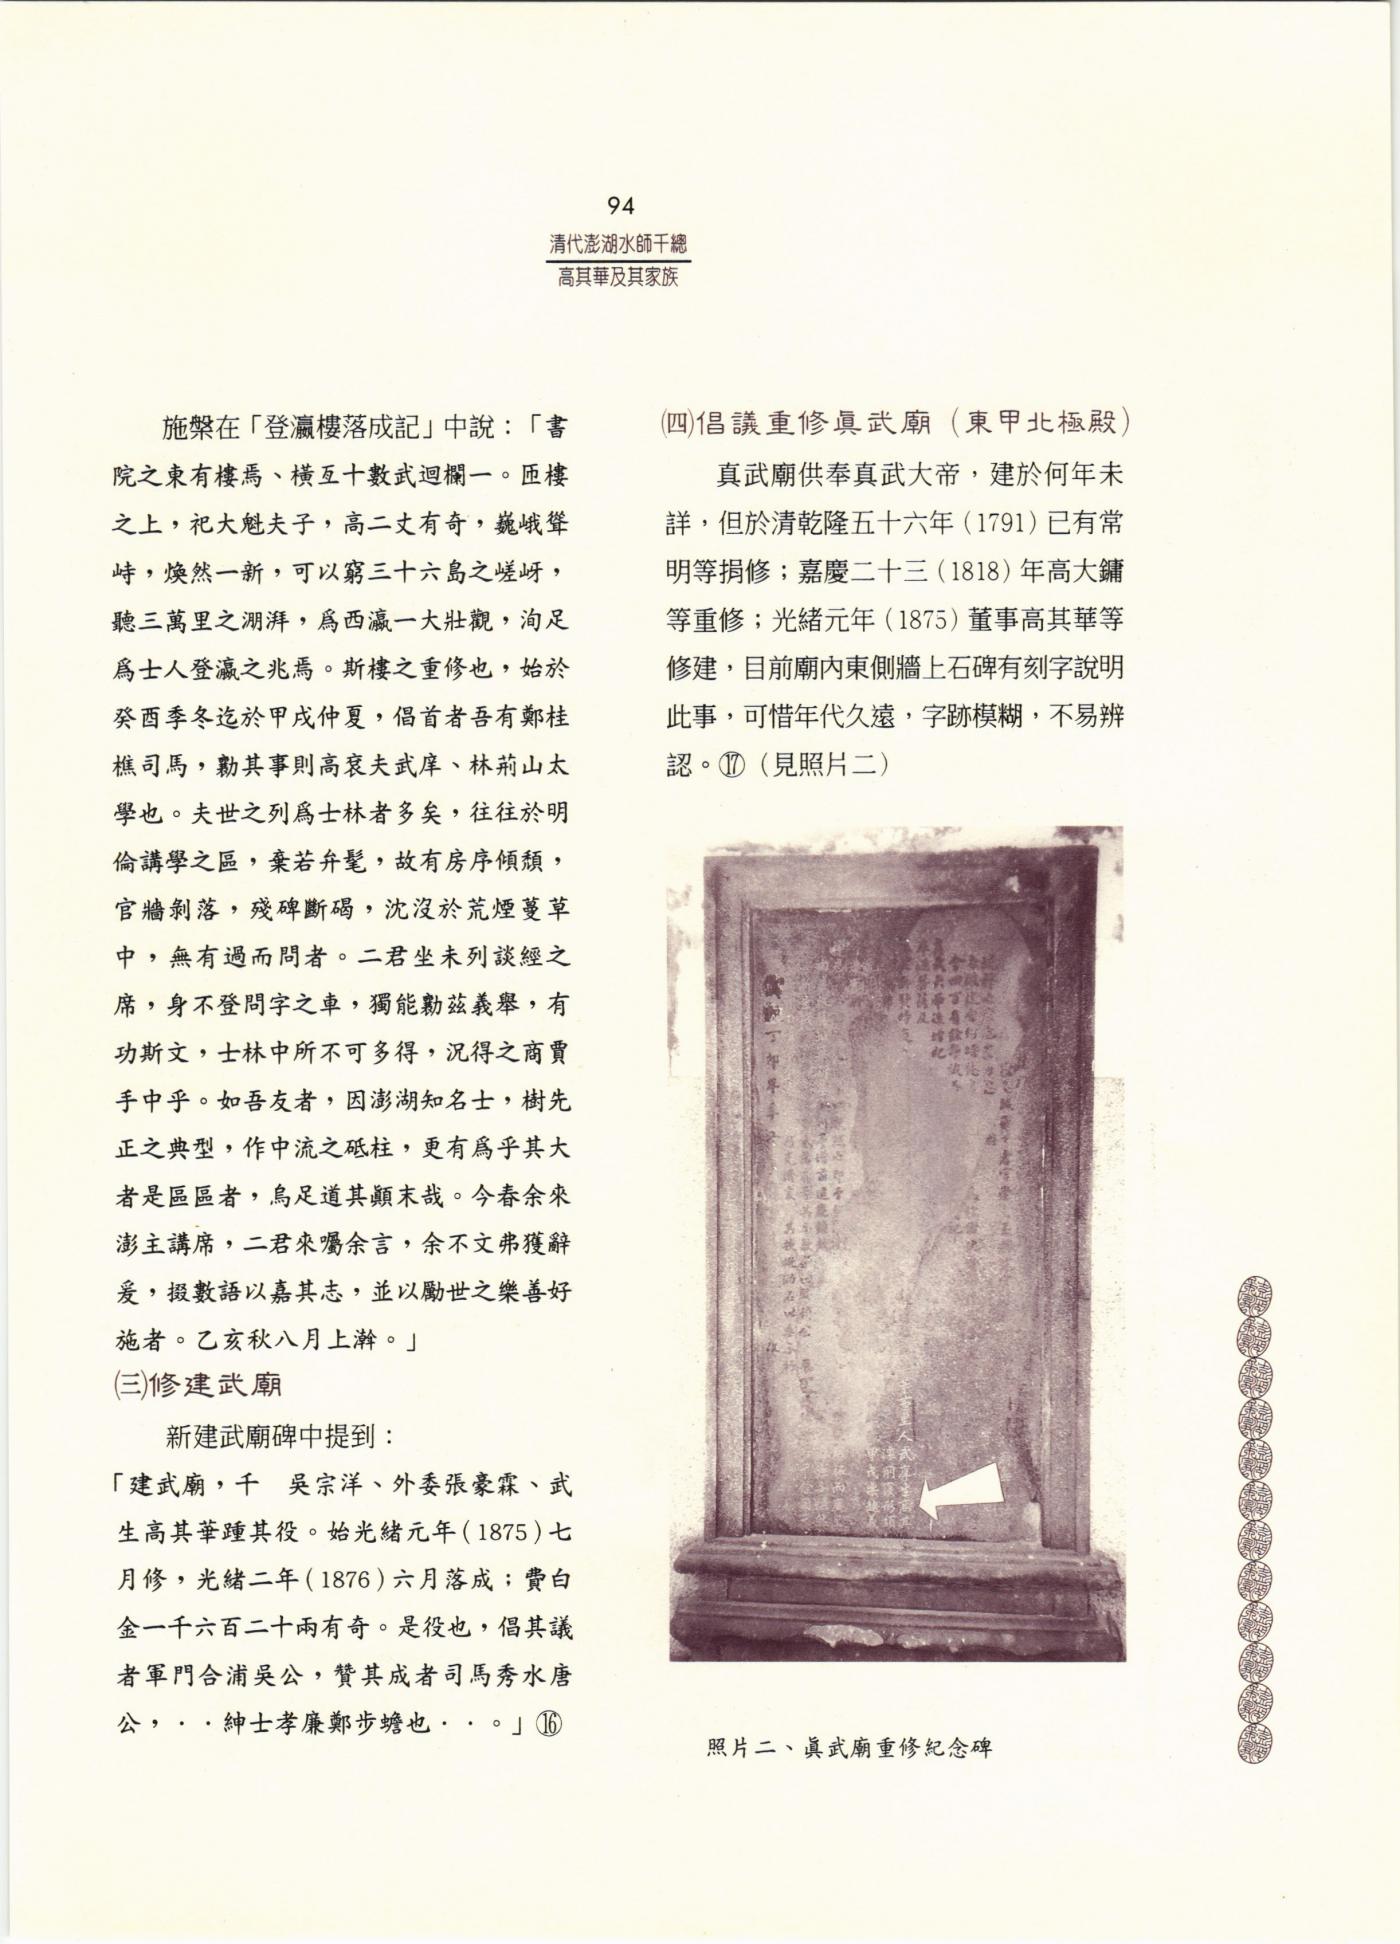 94
清代澎湖水師千總
高其華及其家族
施槃在「登瀛樓落成記」中說：「書
院之東有樓焉、橫亙十數武迴欄一。匝樓
之上，祀大魁夫子，高二丈有奇，巍峨聳
峙，煥然一新，可以窮三十六島之嵯岈，
聽三萬里之淜湃，爲西瀛一大壯觀，洵足
爲士人登瀛之兆焉。斯樓之重修也，始於
癸酉季冬迄於甲戌仲夏，倡首者吾有鄭桂
樵司馬，勷其事則高袞夫武庠、林荊山太
學也。夫世之列爲士林者多矣，往往於明
倫講學之區，棄若弁髦，故有房序傾頹，
官牆剝落，殘碑斷碣，沈沒於荒煙蔓草
中，無有過而問者。二君坐未列談經之
席，身不登問字之車，獨能勷茲義舉，有
功斯文，士林中所不可多得，況得之商賈
手中乎。如吾友者，因澎湖知名士，樹先
正之典型，作中流之砥柱，更有爲乎其大
者是區區者，烏足道其顚末哉。今春余來
澎主講席，二君來囑余言，余不文弗獲辭
爰，掇數語以嘉其志，並以勵世之樂善好
施者。乙亥秋八月上澣。」
㈢修建武廟
新建武廟碑中提到：
「建武廟，千　吳宗洋、外委張豪霖、武
生高其華踵其役。始光緒元年(1875)七
月修，光緒二年(1876)六月落成；費白
金一千六百二十兩有奇。是役也，倡其議
者軍門合浦吳公，贊其成者司馬秀水唐
公，‧‧紳士孝廉鄭步蟾也‧‧。」⑯
㈣倡議重修眞武廟（東甲北極殿）
真武廟供奉真武大帝，建於何年未
詳，但於清乾隆五十六年(1791)已有常
明等捐修；嘉慶二十三(1818)年高大鏞
等重修；光緒元年(1875)董事高其華等
修建，目前廟內東側牆上石碑有刻字說明
此事，可惜年代久遠，字跡模糊，不易辨
認。⑰（見照片二）
照片二、眞武廟重修紀念碑